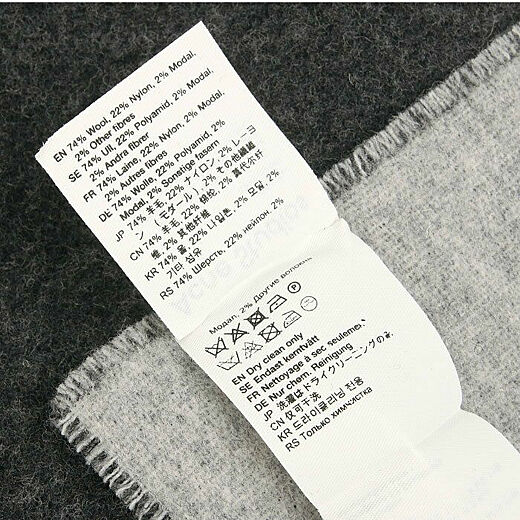 EN 74% Wool, 22% Nylon, 2% Modal,
2% Other fibres
SE 74% Ull, 22% Polyamid, 2% Modal,
2% Andra fibrer
FR 74% Laine, 22% Nylon, 2% Modal,
2% Autres fibres
DE 74% Wolle, 22% Polyamid, 2%
Modal, 2% Sonstige fasern
JP 74% 羊毛, 22% ナイロン, 2% レーヨ
ン (モダール), 2% その他繊維
CN 74% 羊毛, 22% 锦纶, 2% 莫代尔纤
维, 2% 其他纤维
KR 74% 울, 22% 나일론, 2% 모달, 2%
기타 섬유
RS 74% Шерсть, 22% нейлон, 2%
Модал, 2% Другие волокна
EN Dry clean only
SE Endast kemtvätt
FR Nettoyage à sec seulement
DE Nur chem. Reinigung
JP 洗濯はドライクリーニングのみ
CN 仅可干洗
KR 드라이클리닝 전용
RS Только химчистка